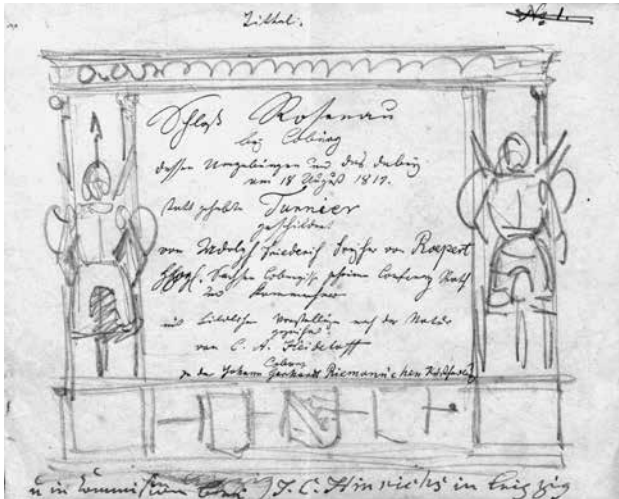 Tittel.
No 1.
Schloß Rosenau
bey Coburg
dessen Umgebungen und das dabey
am 18 August 1817.
statt gehabte Turnier
geschildert
von Adolph Friederich Freyherr von Roepert
Sachsen Coburgisch geheimer Conferenz Rath
und Kammerherr
mit bildlichen Vorstellungen nach der Natur
von C. A. Heideloff
Coburg
in der Johann Gerhardt Riemannschen Buchhandlung
u in Commission bey J. C. Hinrichs in Leipzig